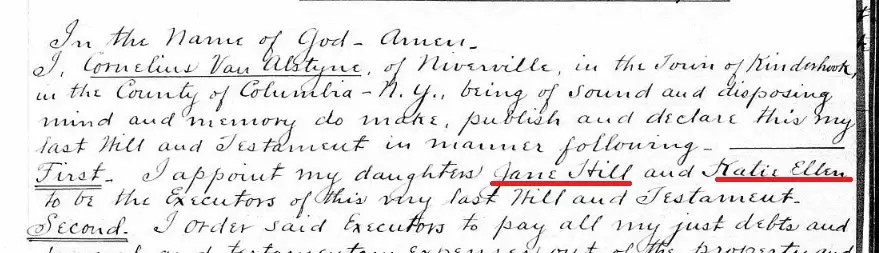 In the Name of God - Amen -
I, Cornelius Van Alstyne, of Niverville, in the Town of Kinderhook,
in the County of Columbia - N.Y., being of sound and disposing
mind and memory do make, publish and declare this my
last Will and Testament in manner following -
First - I appoint my daughters Jane Hill and Katie Ellen
to be the Executors of this my last Will and Testament -
Second. I order said Executors to pay all my just debts and
and testamentary expenses out of the property and